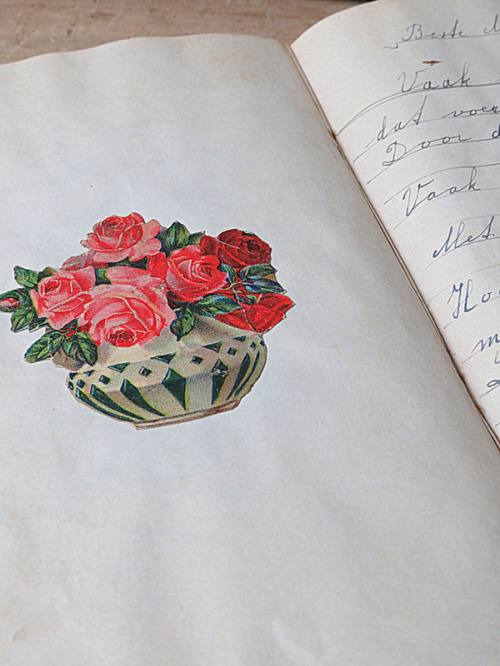 Beste
Vaak
dat
Door d
Vaak
Met
Hoo
m